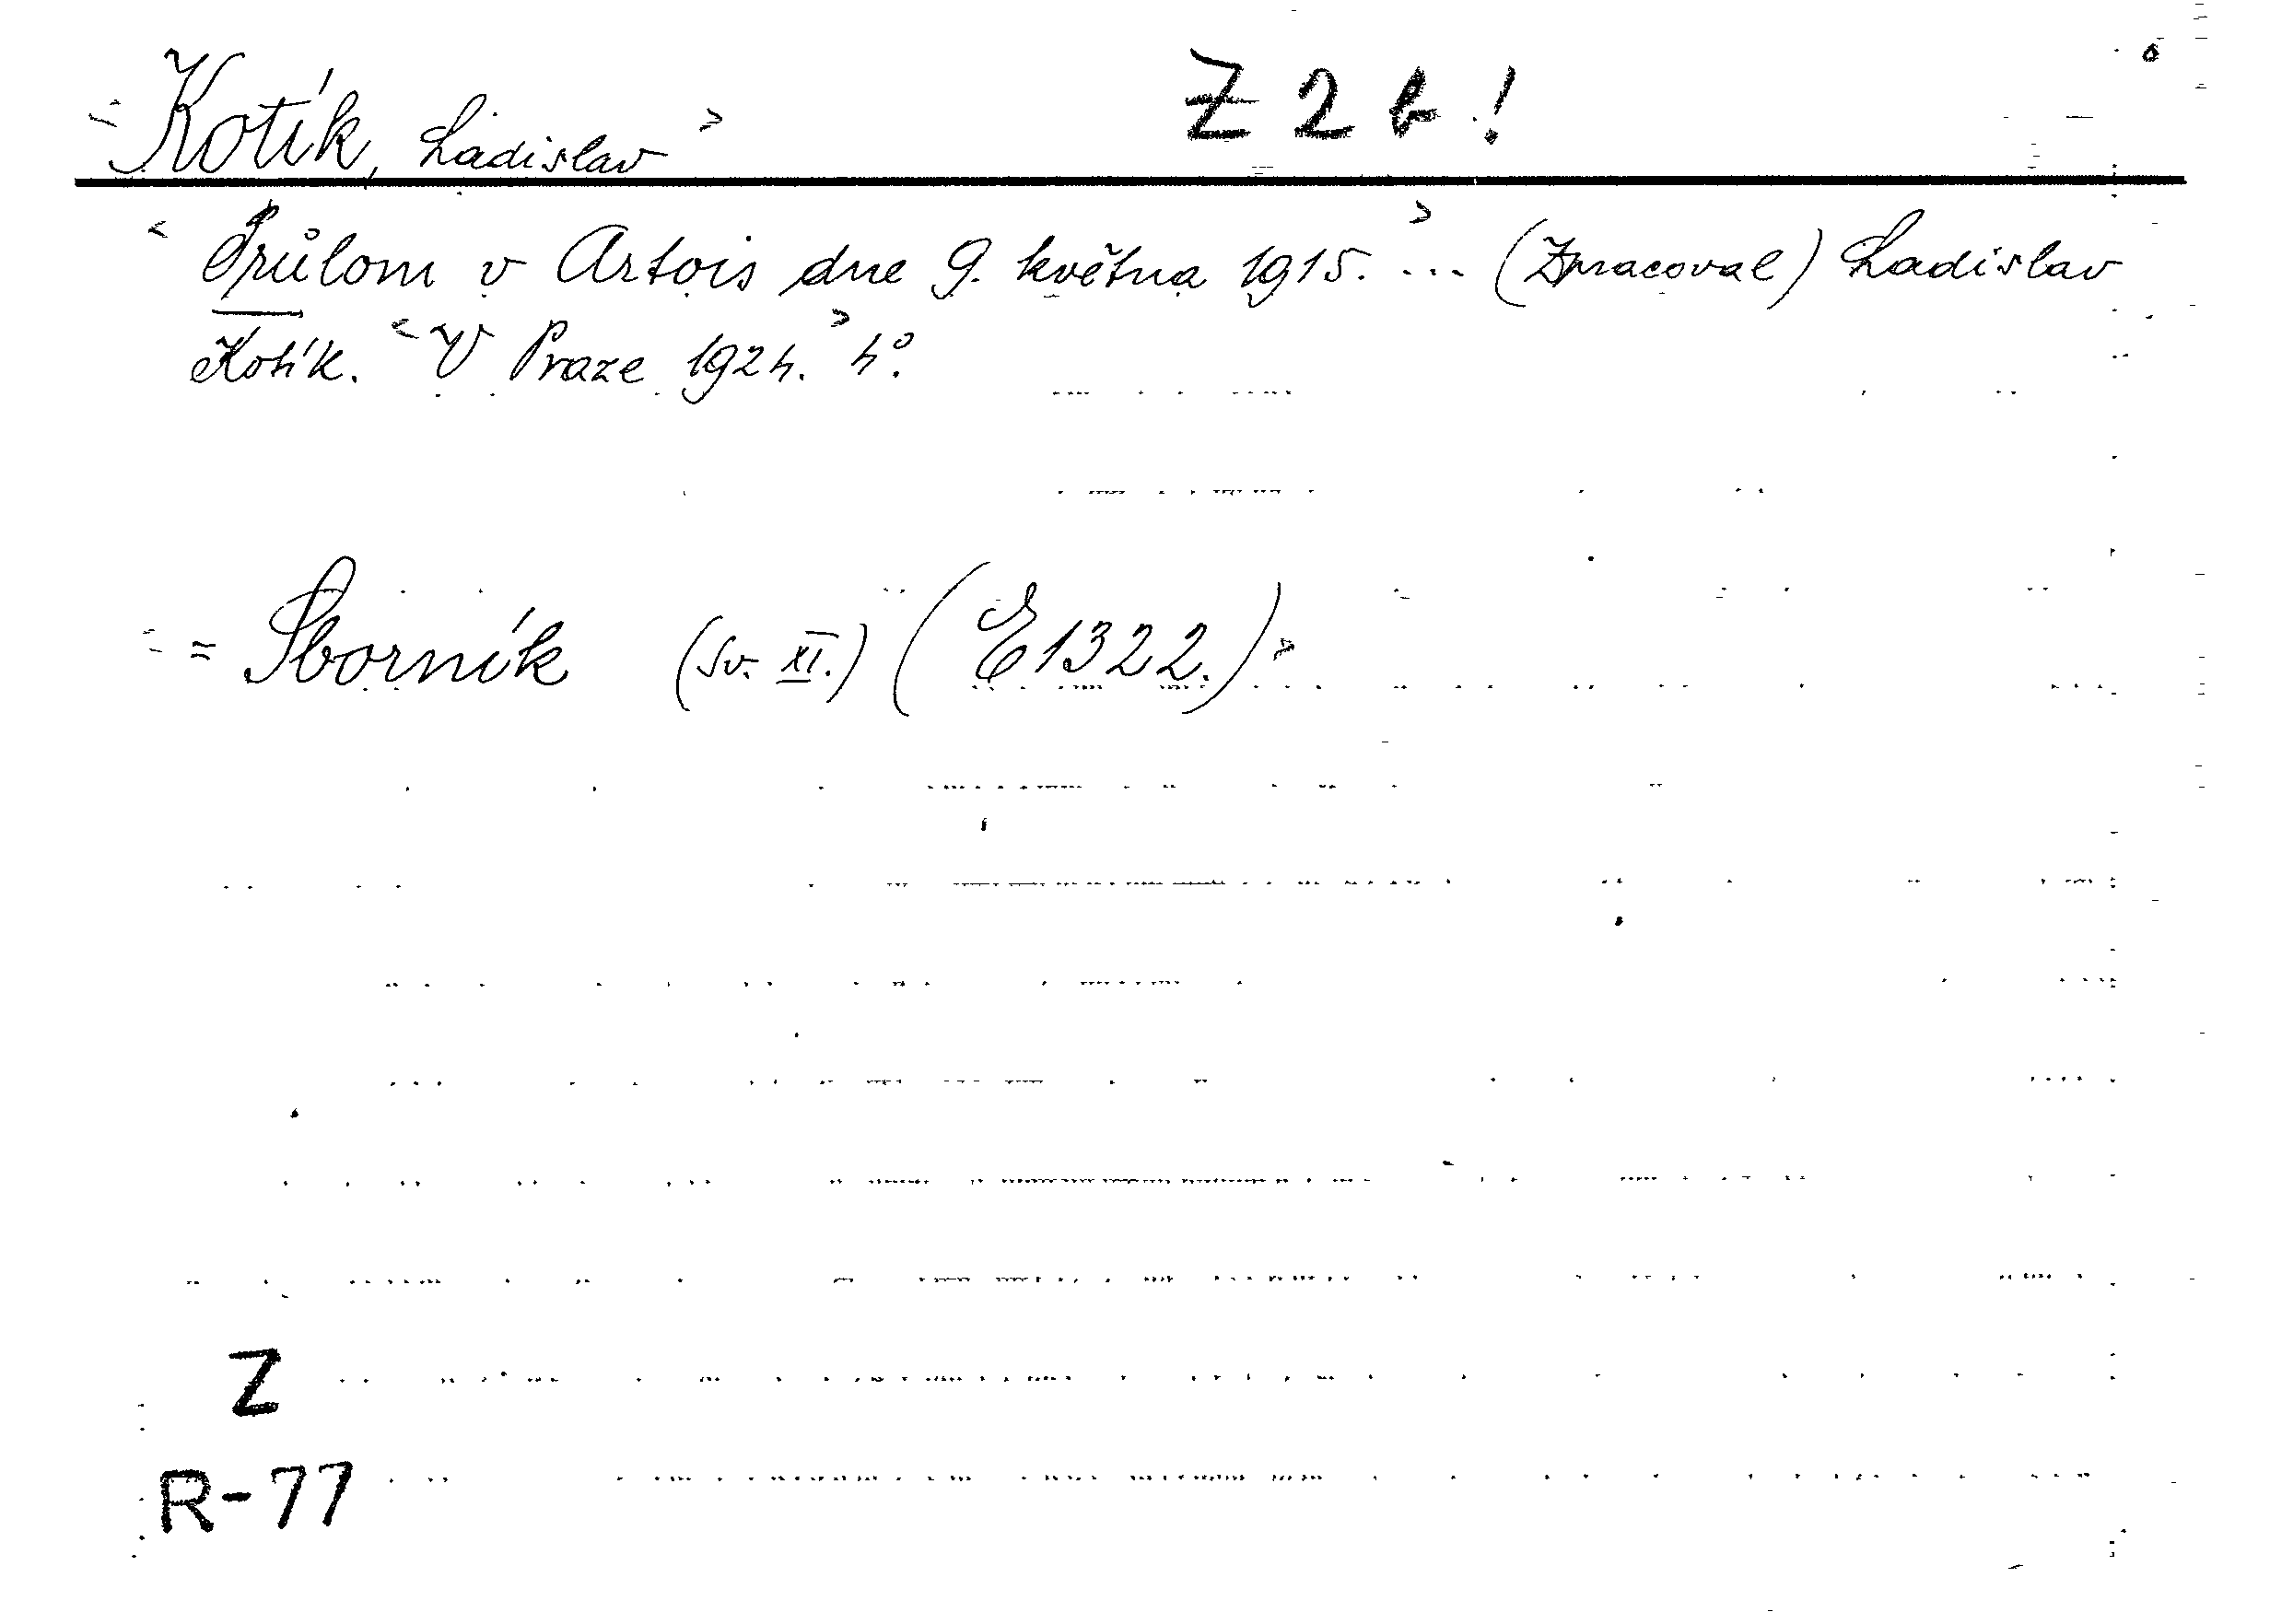 <Kotík, Ladislav> Z 2 b !
<Průlom v Artois dne 9. května 1915.> ... (Zpracoval) Ladislav
Kotík. <V Praze 1924.> 4°.
<= Sborník (sv. XI.) (E1322.)>
Z
R-77